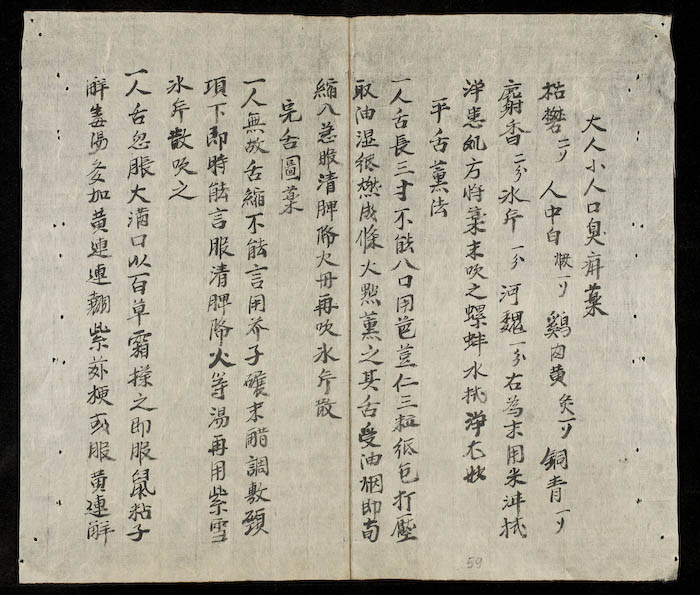 大人小人口臭疳藥
枯礬二刄 人中白煅一刄 鷄內黃炙一刄 銅青一刄
麝香二分 冰片一分 河魏一分 右為末用米泔拭
淨患処方將藥末吹之螺蚌水拭淨尤妙
平舌薰法
一人舌長三寸不能入口用芭荳仁三粒紙包打壓
取油湿紙撚成條火㸃薰之其舌受油烟即旬
縮入急服清脾降火丹再吹冰片散
完舌圖藥
一人無故舌縮不能言用芥子碾末醋調敷頸
項下即時能言服清脾降火等湯再用紫雪
冰片散吹之
一人舌忽脹大滿口以百草霜搽之即服鼠粘子
解毒湯矣加黃連連翹紫 梗或服黃連解
59